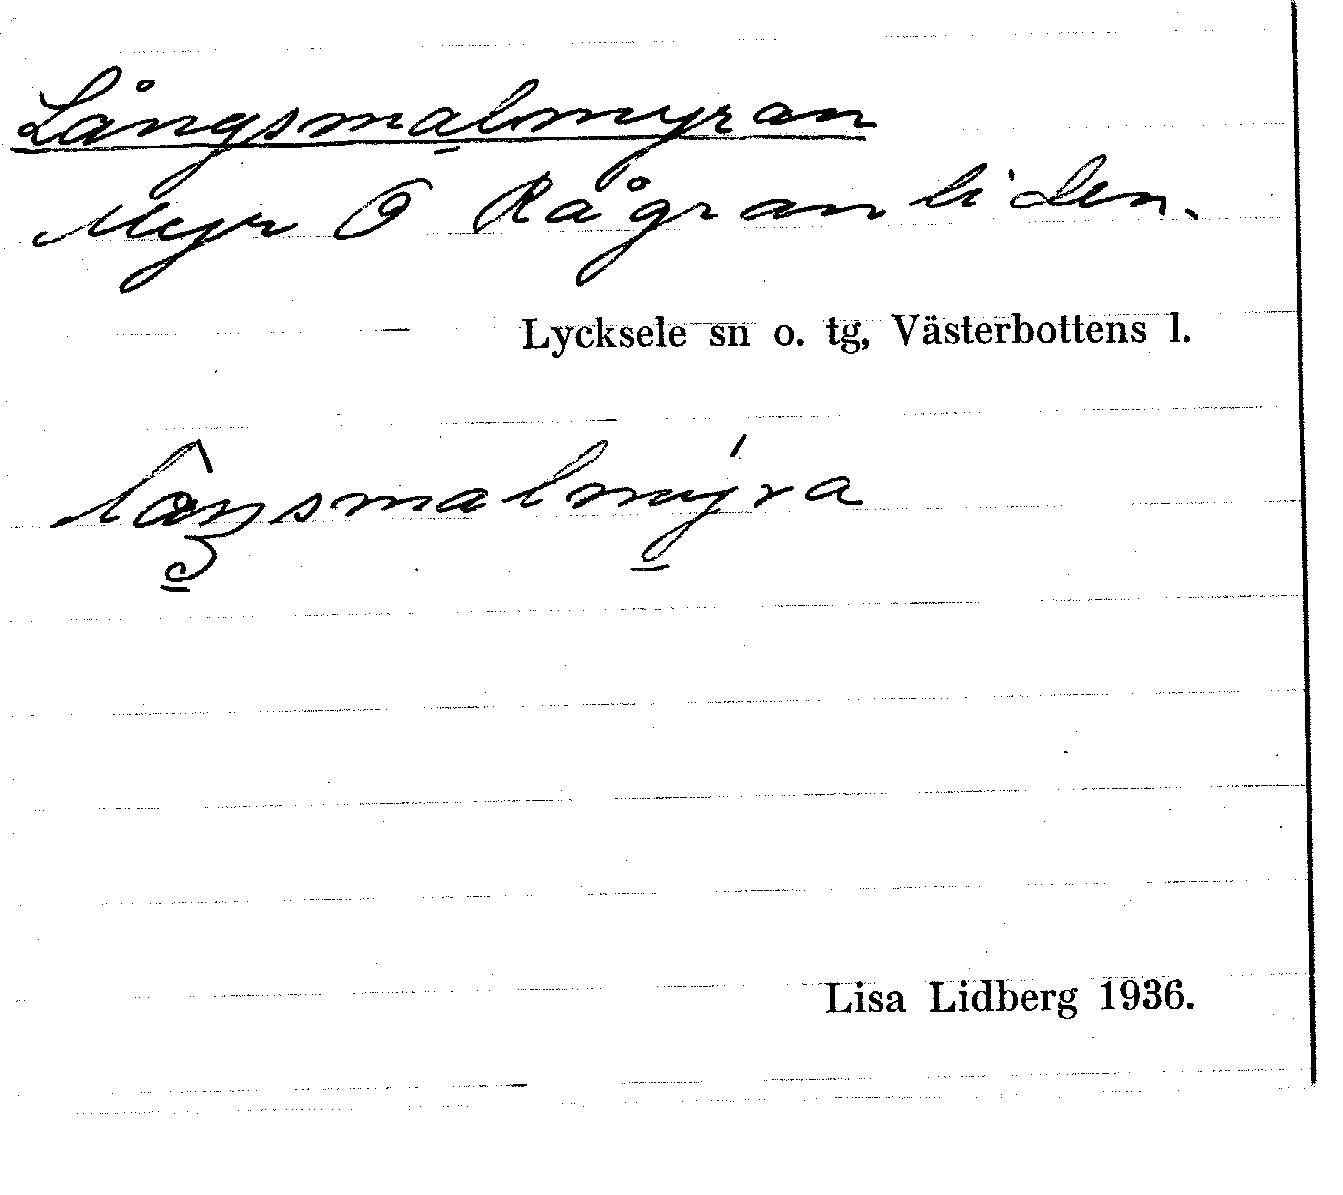 Långsmalmyran
Myr O Rågranliden.
Lycksele sn o. tg, Västerbottens l.
Lisa Lidberg 1936.